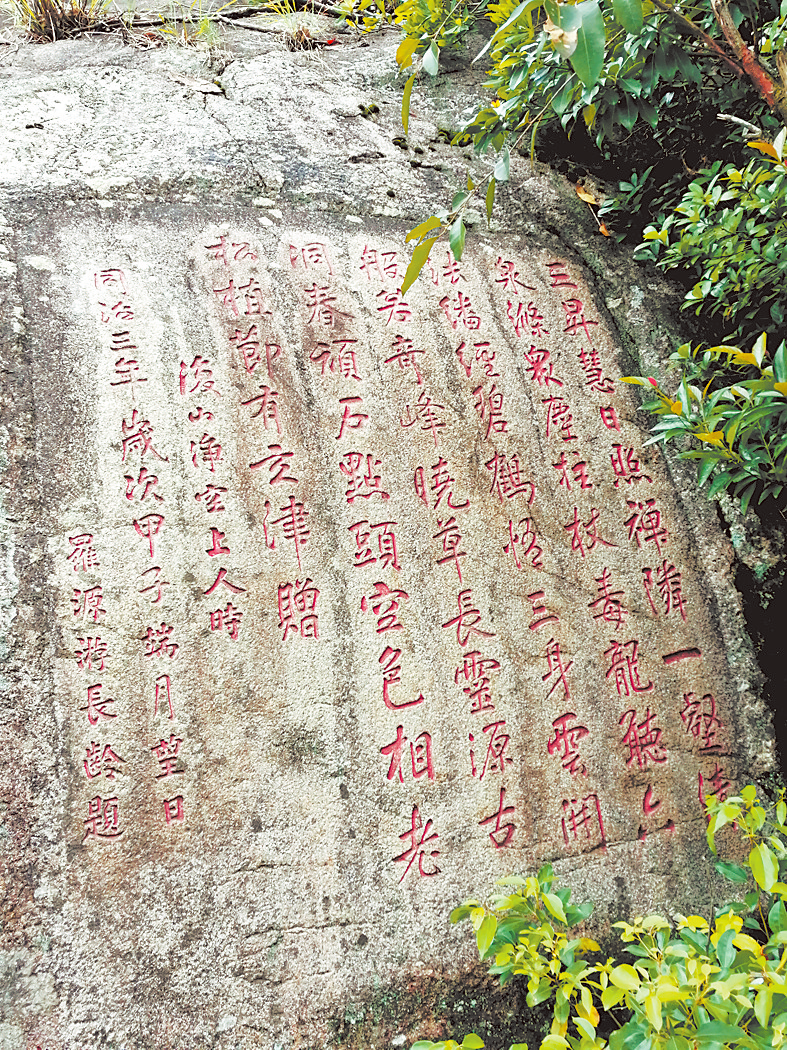 三昇慧日照禪隣一壑清
泉滌衆塵拄杖毒龍聽六
法繙經碧鶴悟三身雲開
般若奇峰曉草長靈源古
洞春頑石點頭空色相老
松植節有玄津贈
山淨空上人時
同治三年歲次甲子端月望日
羅源游長齡題